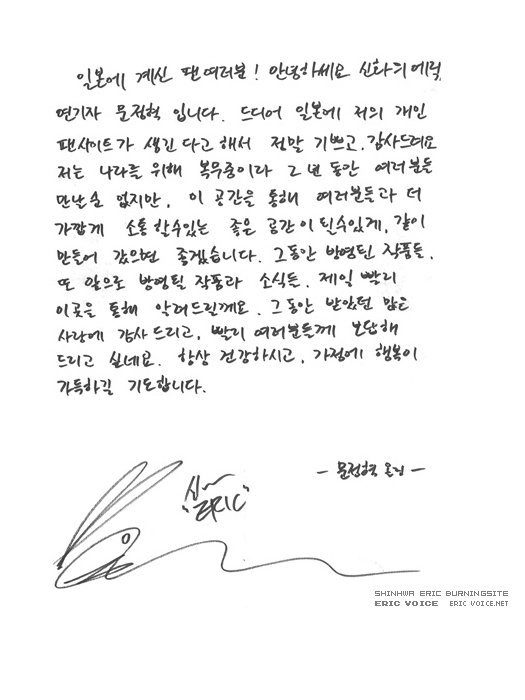 일본에 계신 팬여러분! 안녕하세요 신화의 에릭,
연기자 문정혁 입니다. 드디어 일본에 저의 개인
팬사이트가 생긴다고 해서 정말 기쁘고, 감사드려요
저는 나라를 위해 복무중이라 2년 동안 여러분들
만날순 없지만, 이 공간을 통해 여러분들과 더
가깝게 소통 할수있는 좋은 공간이 될수있게, 같이
만들어 갔으면 좋겠습니다. 그동안 방영된 작품들,
또 앞으로 방영될 작품과 소식들, 제일 빨리
이곳을 통해 알려드릴께요. 그동안 받았던 많은
사랑에 감사드리고, 빨리 여러분들께 보답해
드리고 싶네요. 항상 건강하시고, 가정에 행복이
가득하길 기도합니다.
- 문정혁 올림 -
"ERIC"
SHINHWA ERIC BURNINGSITE
ERIC VOICE ERIC VOICE.NET